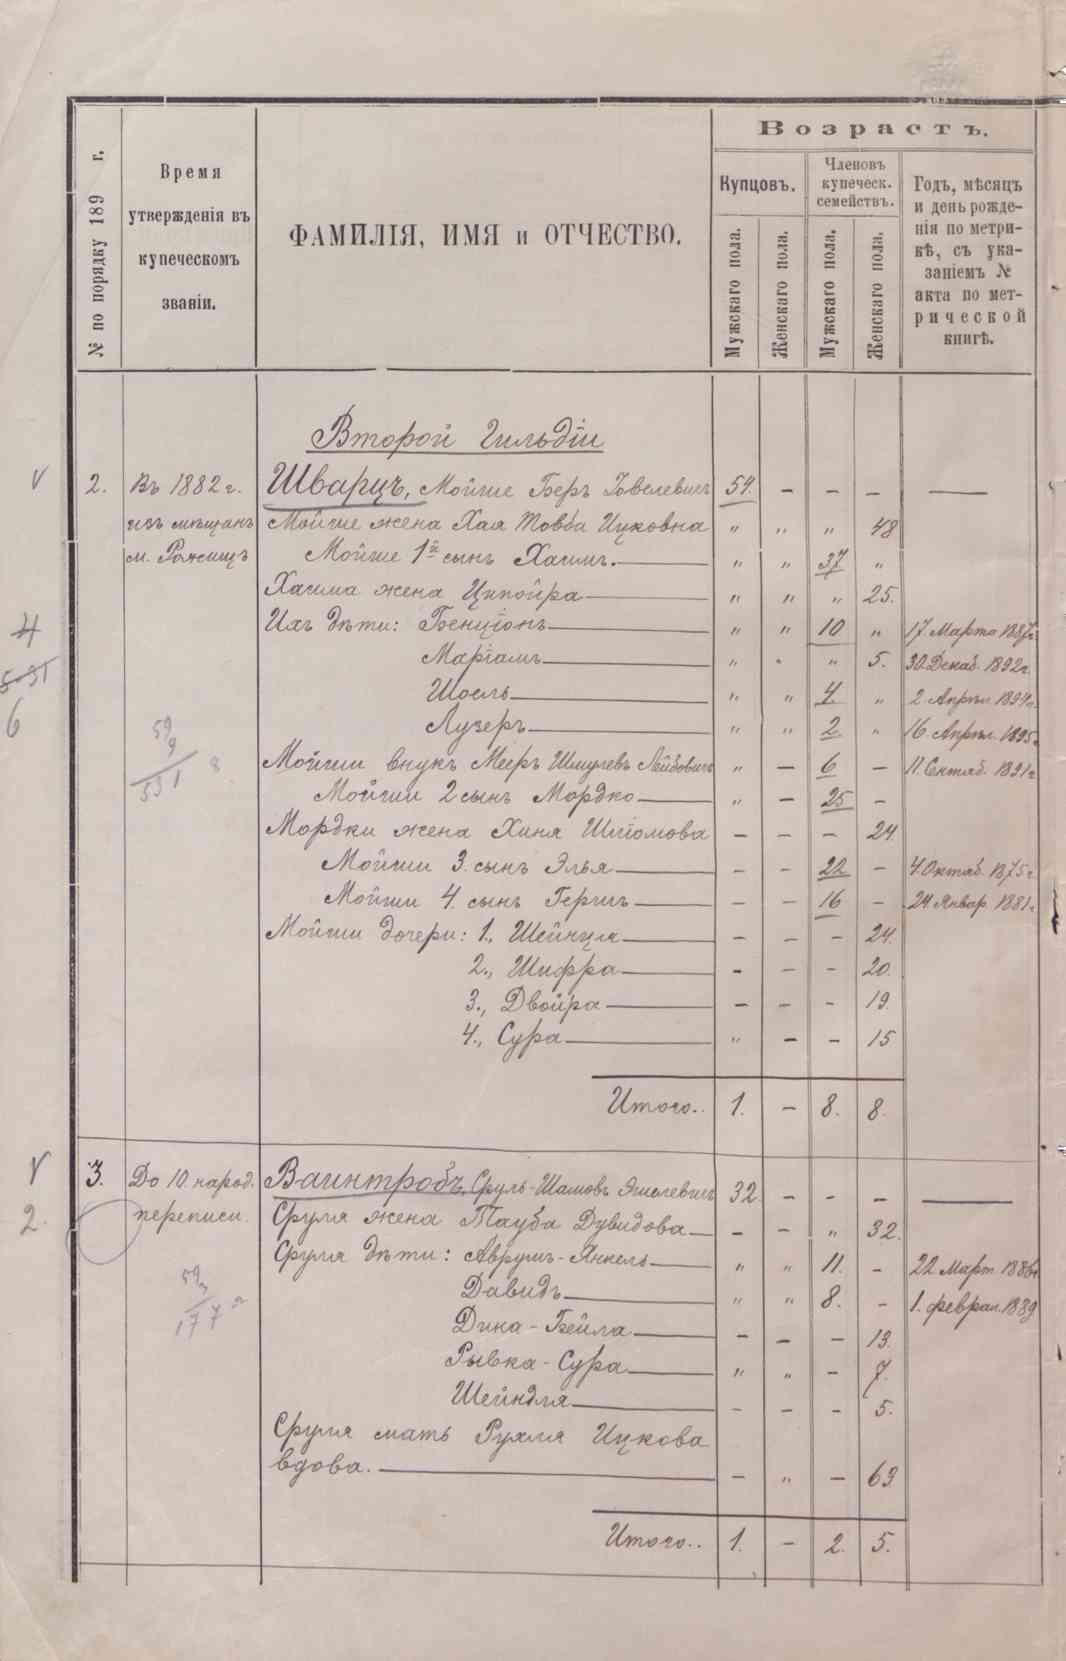 Возрастъ.
№ по порядку 189 г.
Время утвержденія въ купеческомъ званіи.
ФАМИЛІЯ, ИМЯ и ОТЧЕСТВО.
Купцовъ.
Членовъ купеческ. семействъ.
Мужскаго пола.
Женскаго пола.
Мужскаго пола.
Женскаго пола.
Годъ, мѣсяцъ
и день рожде-
нія по метри-
кѣ, съ ука-
заніемъ №
акта по мет-
рической
книгѣ.
Второй Гильдіи
V 2. Въ 1882 г. Шварцъ, Мойше Беръ Іовелевичъ 54. — — — —
изъ мѣщанъ Мойше жена Хая Товба Ицковна " " " 48
м. Рожищъ Мойше 1й сынъ Хаимъ. " " 37 "
Хаима жена Ципойра " " " 25.
4 Ихъ дѣти: Бенціонъ " " 10 " 17. Марта 1887г.
Маріамъ " " " 5. 30 Декаб. 1892г.
Шоель " " 4. " 2 Апрѣл. 1894г.
6 Лузеръ " " 2 " 16 Апрѣл. 1895г.
59
9
531 8
Мойши внукъ Мееръ Шмулевъ Лейбовичъ " — 6 — 11 Сентяб. 1891г
Мойши 2 сынъ Мордко " — 25 —
Мордки жена Хиня Шліомова — — — 24.
Мойши 3. сынъ Элья — — 22 — 4 Октяб. 1875г.
Мойши 4. сынъ Гершъ — — 16 — 24 Январ. 1881г
Мойши дочери: 1., Шейнцля — — — 24.
2., Шифра — — — 20.
3., Двойра — — — 19.
4., Сура " — — 15
Итого.. 1. — 8. 8.
V 3. До 10. народ. Ваинтробъ, Сруль-Шамовъ 32 — — — —
2. переписи. Сруля жена Тауба Дувидова — — " 32.
Сруля дѣти: Аврумъ-Янкель " " 11. — 22 Март 1886г
59
3
177
Давидъ " " 8. — 1. феврал. 1889
Дина-Бейла — — — 13.
Рывка-Сура " " — 7.
Шейндля — — — 5.
Сруля мать Рухля Ицкова
вдова. — " — 69
Итого.. 1. — 2. 5.